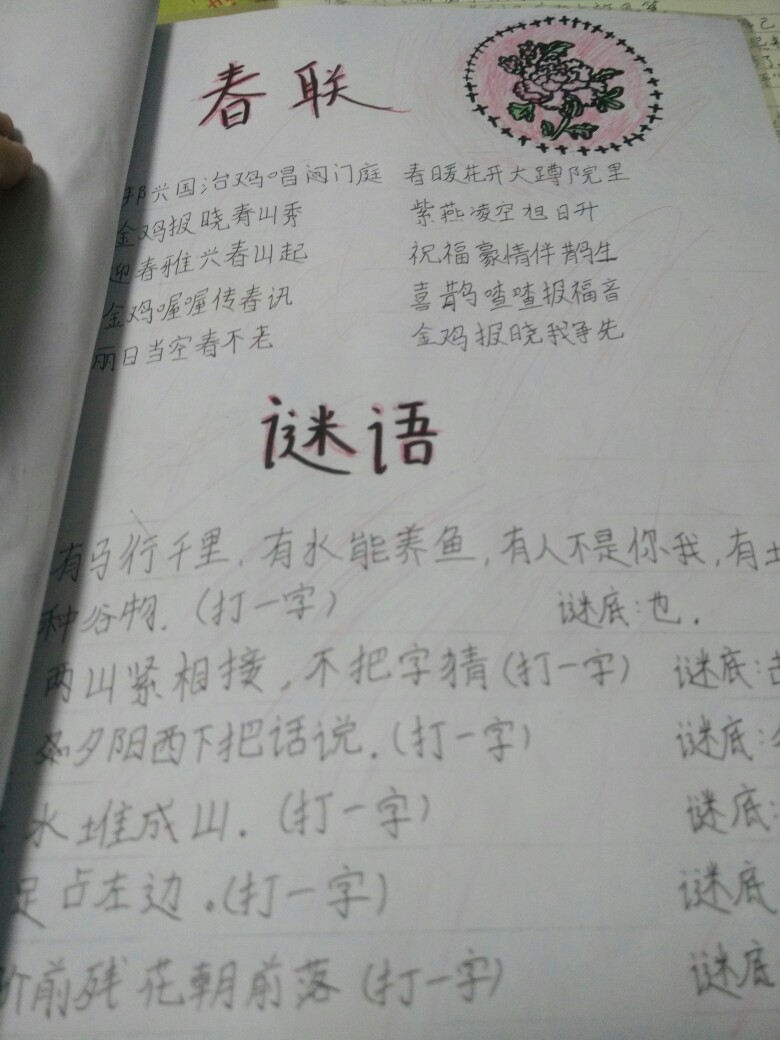 春联
邦兴国治鸡唱闾门庭 春暖花开大蹲院里
金鸡报晓青山秀 紫燕凌空旭日升
迎春雅兴春山起 祝福豪情伴鹊生
金鸡喔喔传春讯 喜鹊喳喳报福音
丽日当空春不老 金鸡报晓我争先
谜语
有马行千里,有水能养鱼,有人不是你我,有土
种谷物.(打一字) 谜底:也.
两山紧相接,不把字猜(打一字) 谜底:
夕阳西下把话说.(打一字) 谜底:
水堆成山.(打一字) 谜底:
足占左边.(打一字) 谜底
阶前残花朝前落(打一字) 谜底